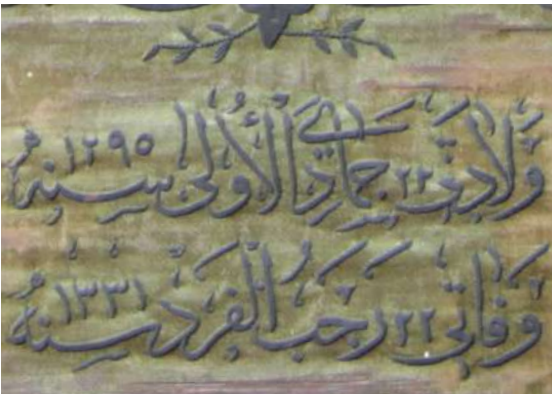 ولادتى ٢٢ جمادى الأولى سنه ١٢٩٥
وفاتى ٢٢ رجب الفرد سنه ١٣٣١